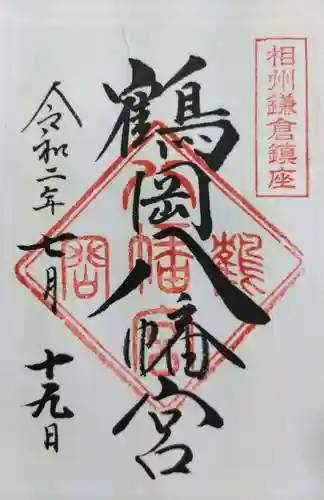 相州鎌倉鎮座
鶴岡八幡宮
令和二年七月十九日
鶴岡八幡宮